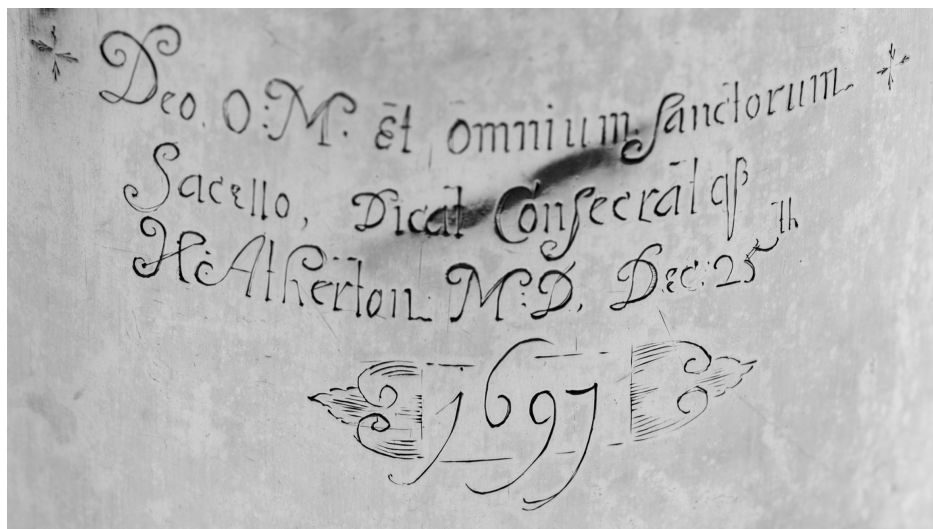 Deo. O: M: Et omnium Sanctorum
Sacello, Dicat Consecrat qȝ
H: Atherton M: D. Dec: 25th
1697